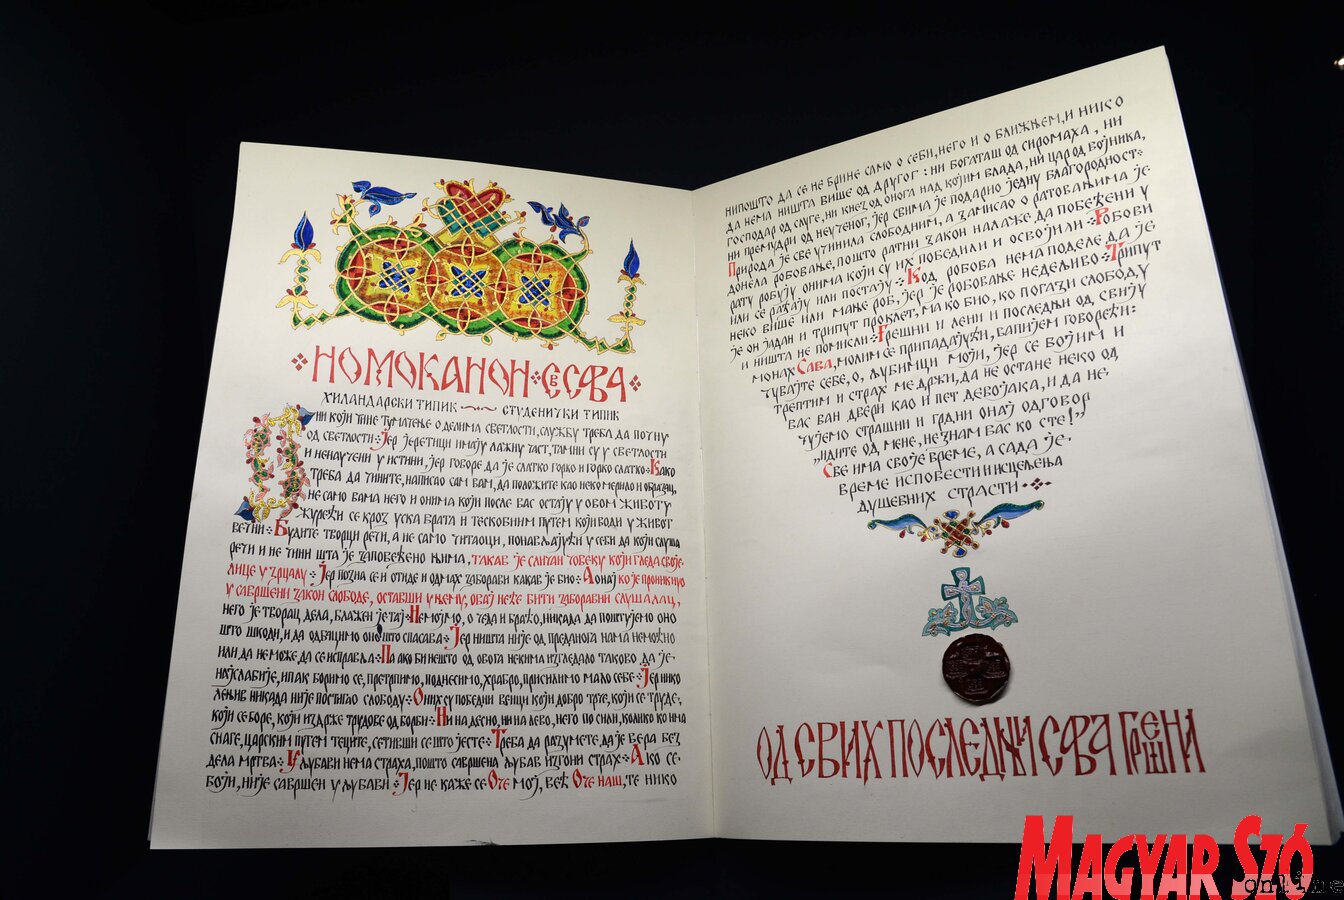 НОМОКАНОН СВ САВА
ХИЛАНДАРСКИ ТИПИК СТУДЕНИЧКИ ТИПИК
ОНИ КОЈИ ТИНЕ ТУМАЧЕЊЕ О ДЕЛИМА СВЕТЛОСТИ, СЛУЖБУ ТРЕБА ДА ПОЧНУ
ОД СВЕТЛОСТИ: ЈЕР ЈЕРЕТИЦИ ИМАЈУ ЛАЖНУ ЧАСТ, ТАМНИ СУ У СВЕТЛОСТИ
И НЕНАУЧЕНИ У ИСТИНИ, ЈЕР ГОВОРЕ ДА ЈЕ СЛАТКО ГОРКО И ГОРКО СЛАТКО КАКО
ТРЕБА ДА ЧИНИТЕ, НАПИСАО САМ ВАМ, ДА ПОЛОЖИТЕ КАО НЕКО МЕРИЛО И ОБРАЗАЦ,
НЕ САМО ВАМА НЕГО И ОНИМА КОЈИ ПОСЛЕ ВАС ОСТАЈУ У ОВОМ ЖИВОТУ
ЖУРЕЋИ СЕ КРОЗ УСКА ВРАТА И ТЕСКОБНИМ ПУТЕМ КОЈИ ВОДИ У ЖИВОТ
ВЕЧНИ БУДИТЕ ТВОРЦИ РЕЧИ, А НЕ САМО ЧИТАОЦИ, ПОНАВЉАЈУЋИ У СЕБИ ДА КОЈИ СЛУША
РЕЧИ И НЕ ЧИНИ ШТА ЈЕ ЗАПОВЕЂЕНО ЊИМА, ТАКАВ ЈЕ СЛИЧАН ЧОВЕКУ КОЈИ ГЛЕДА СВОЈЕ
ЛИЦЕ У ЗРЦАЛУ ЈЕР ПОЗНА СЕ И ОТИДЕ И ОДМАХ ЗАБОРАВИ КАКАВ ЈЕ БИО А ОНАЈ КОЈЕ ПРОНИКНУО
У САВРШЕНИ ЗАКОН СЛОБОДЕ, ОСТАВШИ У ЊЕМУ, ОВАЈ НЕЋЕ БИТИ ЗАБОРАВНИ СЛУШАЛАЦ,
НЕГО ЈЕ ТВОРАЦ ДЕЛА, БЛАЖЕН ЈЕ ТАЈ НЕМОЈМО, О ЧЕДА И БРАЋО, НИКАДА ДА ПОШТУЈЕМО ОНО
ШТО ШКОДИ, И ДА ОДБАЦИМО ОНО ШТО СПАСАВА ЈЕР НИШТА НИЈЕ ОД ПРЕДАНОГА НАМА НЕМОЋНО
ИЛИ ДА НЕ МОЖЕ ДА СЕ ИСПРАВЉА ПА АКО БИ НЕШТО ОД ОВОГА НЕКИМА ИЗГЛЕДАЛО ТАКОВО ДА ЈЕ
НАЈСЛАБИЈЕ, ИПАК БОРИМО СЕ, ПРЕТРПИМО, ПОДНЕСИМО, ХРАБРО, ПРИСИЛИМО МАЛО СЕБЕ ЈЕР НИКО
ЛЕЊИВ НИКАДА НИЈЕ ПОСТИГАО СЛОБОДУ ОНИ СУ ПОБЕДНИ ВЕНЦИ КОЈИ ДОБРО ТРЧЕ, КОЈИ СЕ ТРУДЕ,
КОЈИ СЕ БОРЕ, КОЈИ ИЗДРЖЕ ТРУДОВЕ ОД БОРБИ НИ НА ДЕСНО, НИ НА ЛЕВО, НЕГО ПО СИЛИ, КОЛИКО КО ИМА
СНАГЕ, ЦАРСКИМ ПУТЕМ ТЕЦИТЕ, СЕТИВШИ СЕ ШТО ЈЕСТЕ ТРЕБА ДА РАЗУМЕТЕ, ДА ЈЕ ВЕРА БЕЗ
ДЕЛА МРТВА У ЉУБАВИ НЕМА СТРАХА, ПОШТО САВРШЕНА ЉУБАВ ИЗГОНИ СТРАХ АКО СЕ
БОЈИ, НИЈЕ САВРШЕН У ЉУБАВИ ЈЕР НЕ КАЖЕ СЕ ОЧЕ МОЈ, ВЕЋ ОЧЕ НАШ, ТЕ НИКО
НИПОШТО ДА СЕ НЕ БРИНЕ САМО О СЕБИ, НЕГО И О БЛИЖЊЕМ, И НИКО
ДА НЕМА НИШТА ВИШЕ ОД ДРУГОГ: НИ БОГАТАШ ОД СИРОМАХА, НИ
ГОСПОДАР ОД СЛУГЕ, НИ КНЕЗ ОД ОНОГА НАД КОЈИМ ВЛАДА, НИ ЦАР ОД ВОЈНИКА,
НИ ПРЕМУДРИ ОД НЕУЧЕНОГ, ЈЕР СВИМА ЈЕ ПОДАРИО ЈЕДНУ БЛАГОРОДНОСТ
ПРИРОДА ЈЕ СВЕ УЧИНИЛА СЛОБОДНИМ, А ЗАМИСАО О РАТОВАЊИМА ЈЕ
ДОНЕЛА РОБОВАЊЕ, ПОШТО РАТНИ ЗАКОН НАЛАЖЕ ДА ПОБЕЂЕНИ У
РАТУ РОБУЈУ ОНИМА КОЈИ СУ ИХ ПОБЕДИЛИ И ОСВОЈИЛИ РОБОВИ
ИЛИ СЕ РАЂАЈУ ИЛИ ПОСТАЈУ КОД РОБОВА НЕМА ПОДЕЛЕ ДА ЈЕ
НЕКО ВИШЕ ИЛИ МАЊЕ РОБ, ЈЕР ЈЕ РОБОВАЊЕ НЕДЕЉИВО ТРИПУТ
ЈЕ ОН ЈАДАН И ТРИПУТ ПРОКЛЕТ, МА КО БИО, КО ПОГАЗИ СЛОБОДУ
И НИШТА НЕ ПОМИСЛИ ГРЕШНИ И ЛЕНИ И ПОСЛЕДЊИ ОД СВИЈУ
МОНАХ САВА, МОЛИМ СЕ ПРИПАДАЈУЋИ, ВАПИЈЕМ ГОВОРЕЋИ:
ЧУВАЈТЕ СЕБЕ, О, ЉУБИМЦИ МОЈИ, ЈЕР СЕ БОЈИМ И
ТРЕПТИМ И СТРАХ МЕ ДРЖИ, ДА НЕ ОСТАНЕ НЕКО ОД
ВАС ВАН ДВЕРИ КАО И ПЕТ ДЕВОЈАКА, И ДА НЕ
ЧУЈЕМО СТРАШНИ И ГРДНИ ОНАЈ ОДГОВОР
„ИДИТЕ ОД МЕНЕ, НЕ ЗНАМ ВАС КО СТЕ!”
СВЕ ИМА СВОЈЕ ВРЕМЕ, А САДА ЈЕ
ВРЕМЕ ИСПОВЕСТИ И ИСЦЕЉЕЊА
ДУШЕВНИХ СТРАСТИ
ОД СВИХ ПОСЛЕДЊИ САВА ГРЕШНИ
MAGYAR SZÓ
online